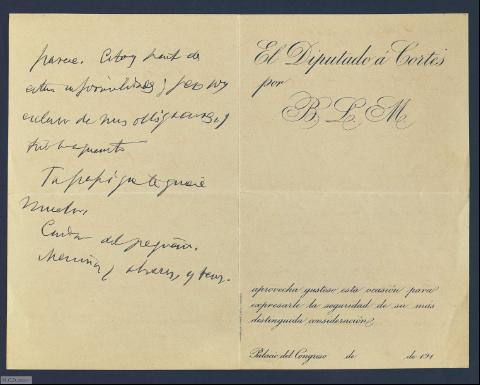 parece. Estoy harto de
estas informalidades; pero soy
esclavo de mis obligaciones y
Tu papá que te quiere
mucho.
Cuida del pequeño.
y abrazos, y besos.
El Diputado á Cortes
por
B L M
aprovecha gustoso esta ocasión para
expresarle la seguridad de su más
distinguida consideración,
Palacio del Congreso de de 191